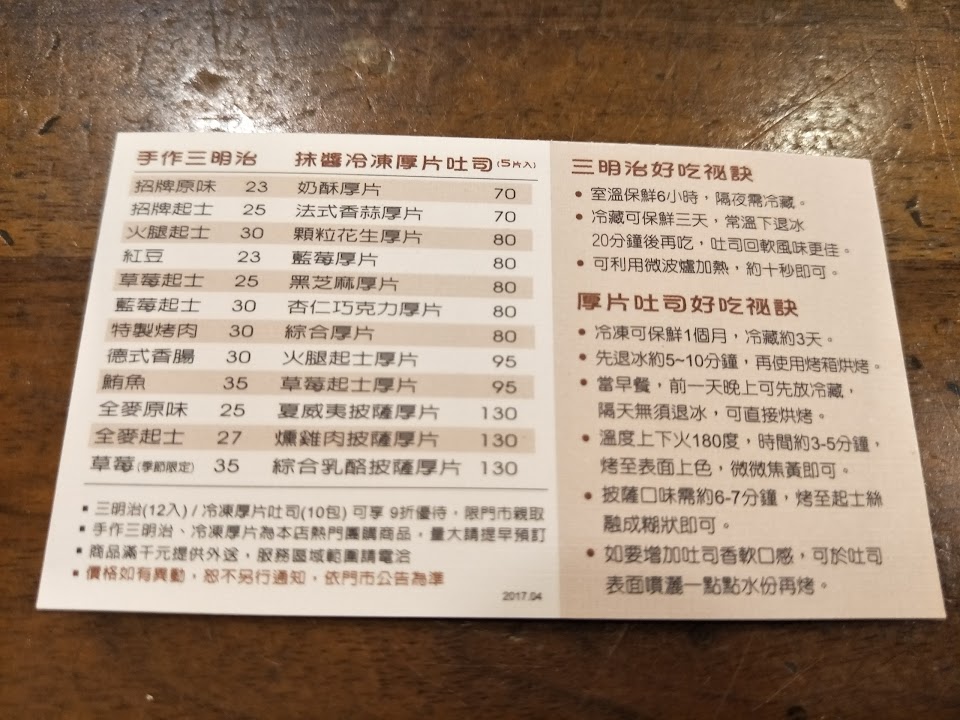 手作三明治 抹醬冷凍厚片吐司(5片入)
招牌原味 23 奶酥厚片 70
招牌起士 25 法式香蒜厚片 70
火腿起士 30 顆粒花生厚片 80
紅豆 23 藍莓厚片 80
草莓起士 25 黑芝麻厚片 80
藍莓起士 30 杏仁巧克力厚片 80
特製烤肉 30 綜合厚片 80
德式香腸 30 火腿起士厚片 95
鮪魚 35 草莓起士厚片 95
全麥原味 25 夏威夷披薩厚片 130
全麥起士 27 燻雞肉披薩厚片 130
草莓(季節限定) 35 綜合乳酪披薩厚片 130
▪ 三明治(12入) / 冷凍厚片吐司(10包) 可享 9折優待，限門市親取
▪ 手作三明治、冷凍厚片為本店熱門團購商品，量大請提早預訂
▪ 商品滿千元提供外送，服務區域範圍請電洽
▪ 價格如有異動，恕不另行通知，依門市公告為準
2017.04
三明治好吃祕訣
• 室溫保鮮6小時，隔夜需冷藏。
• 冷藏可保鮮三天，常溫下退冰
20分鐘後再吃，吐司回軟風味更佳。
• 可利用微波爐加熱，約十秒即可。
厚片吐司好吃祕訣
• 冷凍可保鮮1個月，冷藏約3天。
• 先退冰約5~10分鐘，再使用烤箱烘烤。
• 當早餐，前一天晚上可先放冷藏，
隔天無須退冰，可直接烘烤。
• 溫度上下火180度，時間約3-5分鐘，
烤至表面上色，微微焦黃即可。
• 披薩口味需約6-7分鐘，烤至起士絲
融成糊狀即可。
• 如要增加吐司香軟口感，可於吐司
表面噴灑一點點水份再烤。